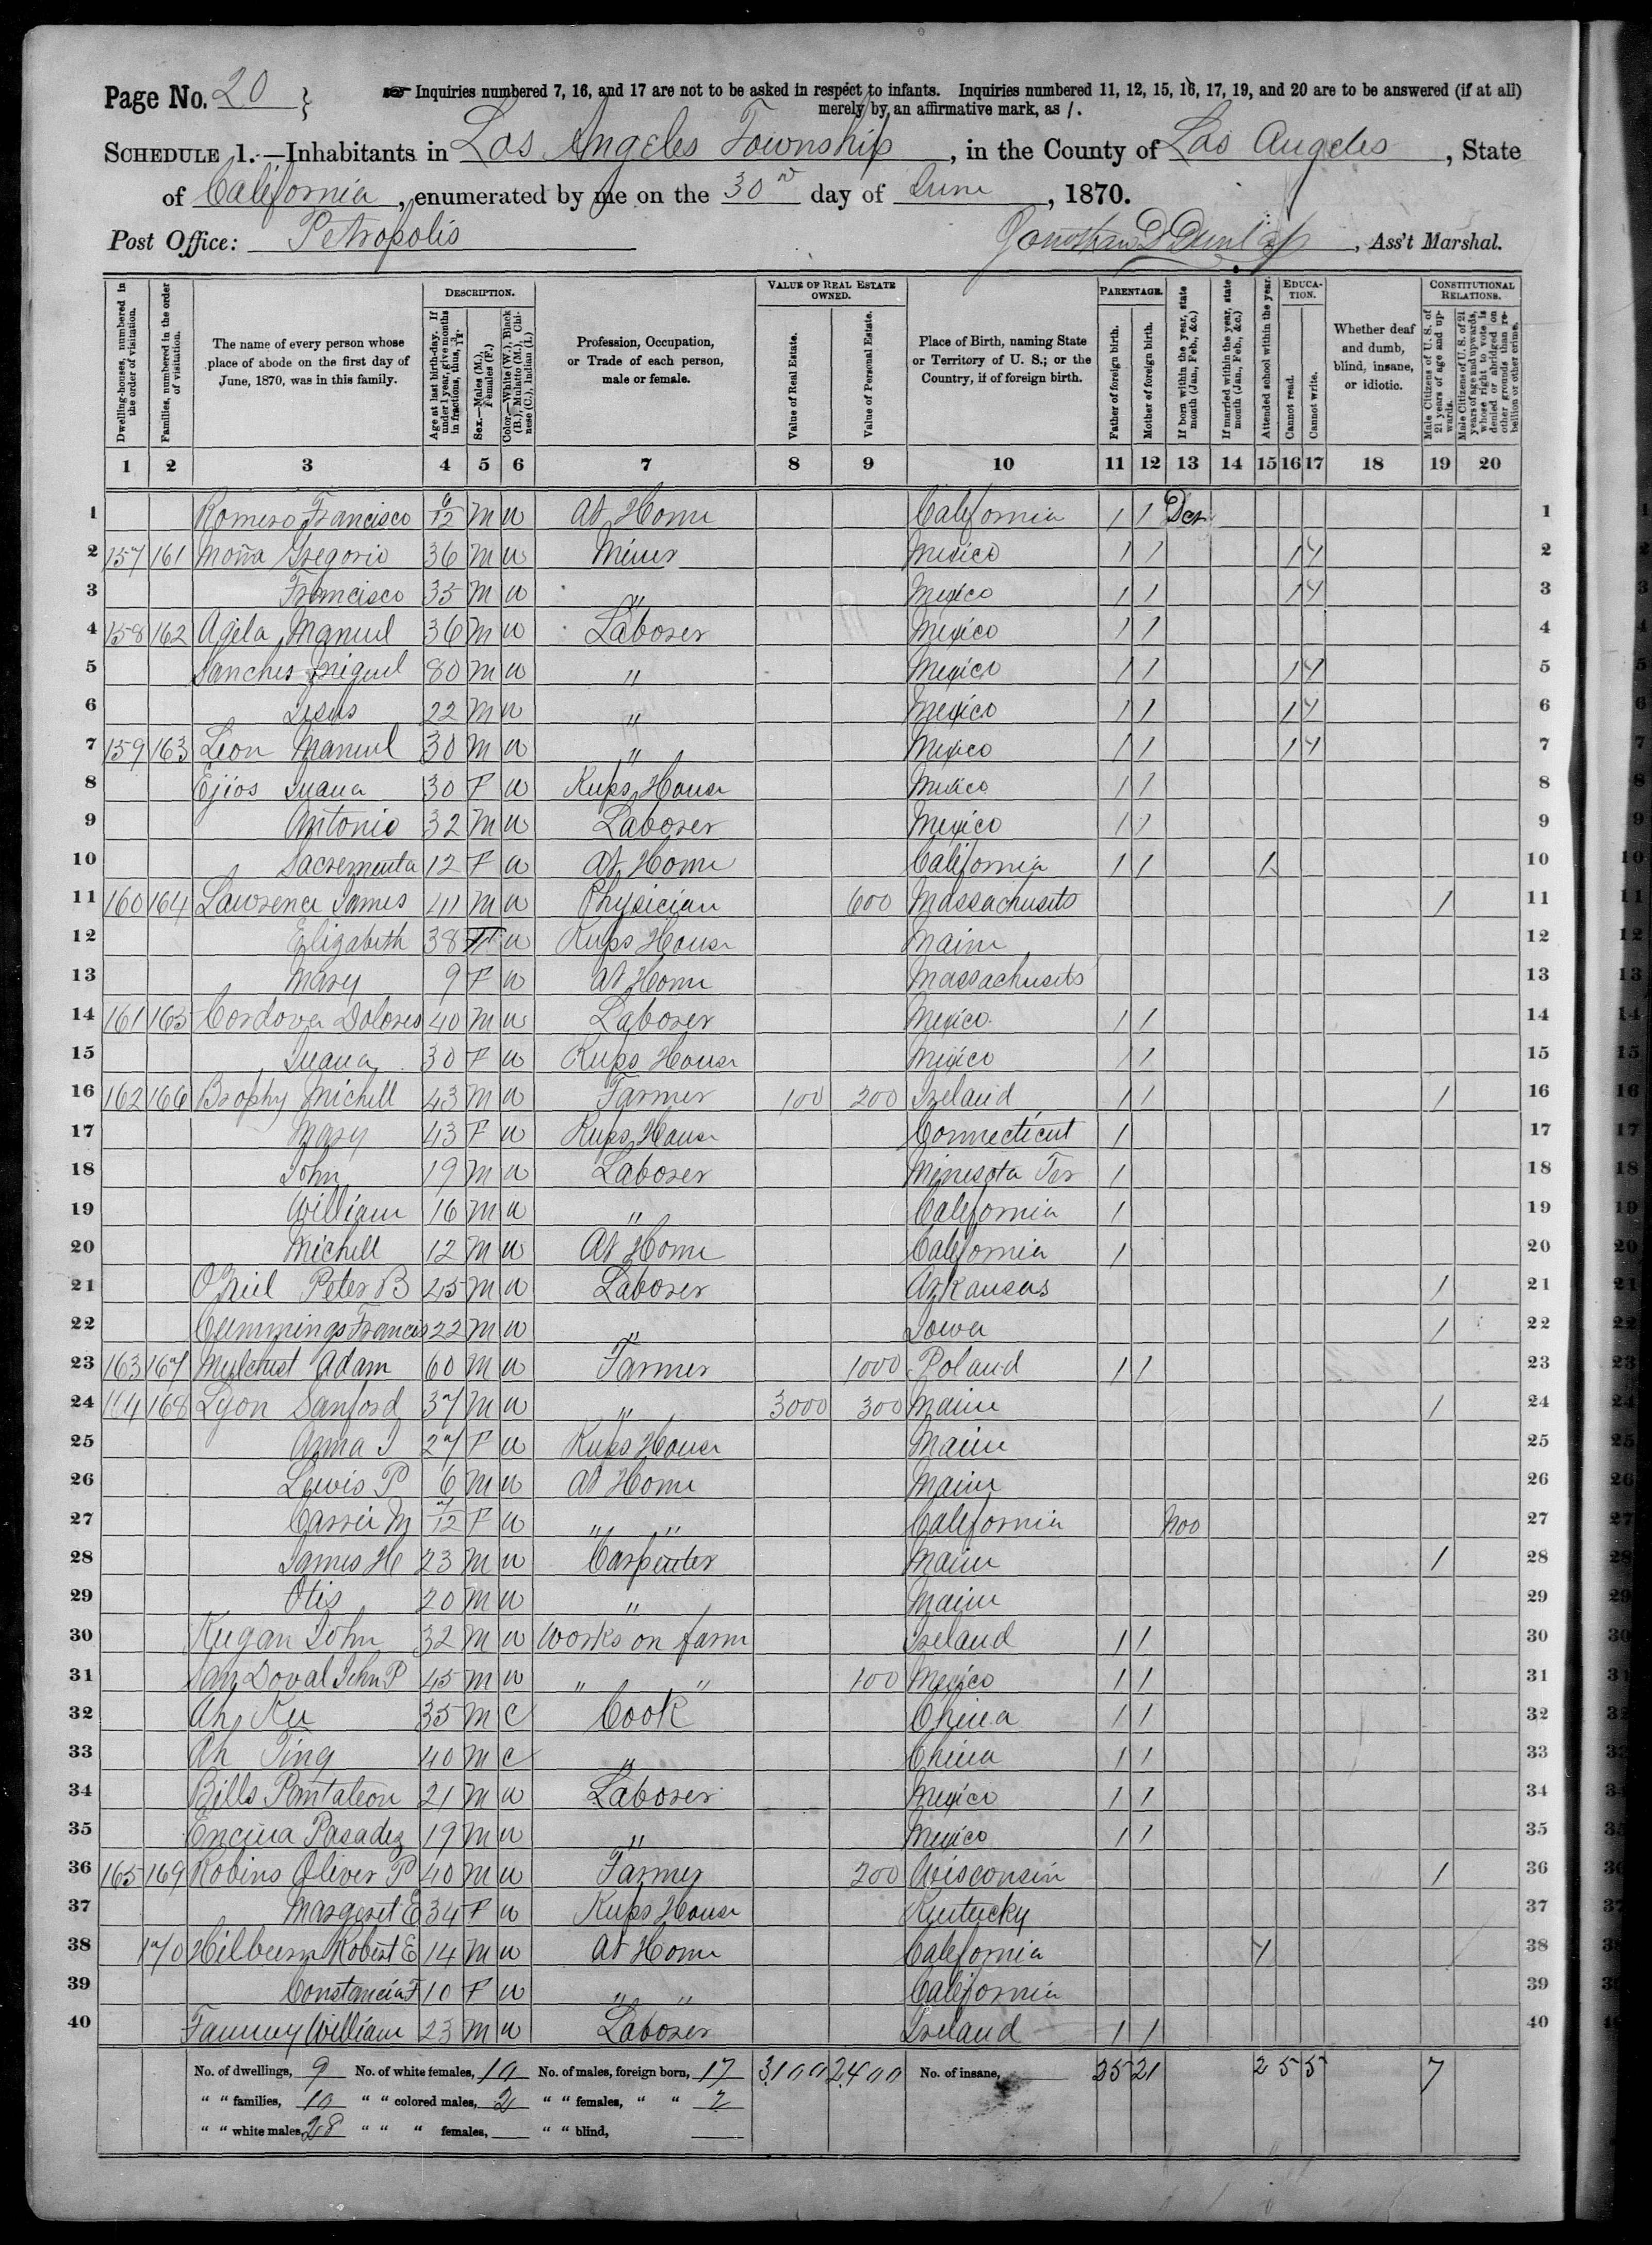 Page No. 20 }
Inquiries numbered 7, 16, and 17 are not to be asked in respect to infants. Inquiries numbered 11, 12, 15, 16, 17, 19, and 20 are to be answered (if at all)
merely by an affirmative mark, as /.
SCHEDULE 1.—Inhabitants in Los Angeles Township, in the County of Los Angeles, State
of California, enumerated by me on the 30 day of June, 1870.
Post Office: Petropolis Dunlap, Ass't Marshal.
Dwelling-houses, numbered in the order of visitation.
Families, numbered in the order of visitation.
The name of every person whose place of abode on the first day of June, 1870, was in this family.
DESCRIPTION.
Age at last birth-day. If under 1 year, give months in fractions, thus, 3/12.
Sex.—Males (M.), Females (F.)
Color.—White (W.), Black (B.), Mulatto (M.), Chinese (C.), Indian (I.)
Profession, Occupation, or Trade of each person, male or female.
VALUE OF REAL ESTATE OWNED.
Value of Real Estate.
Value of Personal Estate.
Place of Birth, naming State or Territory of U. S.; or the Country, if of foreign birth.
PARENTAGE.
Father of foreign birth.
Mother of foreign birth.
If born within the year, state month (Jan., Feb., &c.)
If married within the year, state month (Jan., Feb., &c.)
Attended school within the year.
EDUCATION.
Cannot read.
Cannot write.
Whether deaf and dumb, blind, insane, or idiotic.
CONSTITUTIONAL RELATIONS.
Male Citizens of U. S. of 21 years of age and upwards.
Male Citizens of U. S. of 21 years of age and upwards, whose right to vote is denied or abridged on other grounds than rebellion or other crime.
1 2 3 4 5 6 7 8 9 10 11 12 13 14 15 16 17 18 19 20
1 Romero Francisco 6/12 M W At Home California 1 1 Dec 1
2 157 161 Gregorio 36 M W Miner Mexico 1 1 1 1 2
3 Francisco 35 M W " Mexico 1 1 1 1 3
4 158 162 Manuel 36 M W Laborer Mexico 1 1 4
5 Sanches Miguel 80 M W " Mexico 1 1 1 1 5
6 Jesus 22 M W " Mexico 1 1 1 1 6
7 159 163 Leon Manuel 30 M W " Mexico 1 1 1 1 7
8 Ejios Juana 30 F W Keeps House Mexico 1 1 8
9 Antonio 32 M W Laborer Mexico 1 1 9
10 Sacrementa 12 F W At Home California 1 1 1 10
11 160 164 Lawrence James 41 M W Physician 600 Massachusets 1 11
12 Elizabeth 38 F W Keeps House Maine 12
13 Mary 9 F W At Home Massachusets 13
14 161 165 Cordova Dolores 40 M W Laborer Mexico 1 1 14
15 Juana 30 F W Keeps House Mexico 1 1 15
16 162 166 Brophy Michell 43 M W Farmer 100 200 Ireland 1 1 1 16
17 Mary 43 F W Keeps House Connecticut 1 17
18 John 19 M W Laborer Minesota Ter 1 18
19 William 16 M W " California 1 19
20 Michell 12 M W At Home California 1 20
21 O'Neil Peter B 45 M W Laborer Arkansas 1 21
22 Cummings Francis 22 M W " Iowa 1 22
23 163 167 Adam 60 M W Farmer 1000 Poland 1 1 23
24 164 168 Lyon Sanford 37 M W " 3000 300 Maine 1 24
25 27 F W Keeps House Maine 25
26 Lewis P 6 M W At Home Maine 26
27 Carrie M 7/12 F W " " California Nov 27
28 James H 23 M W Carpenter Maine 1 28
29 Otis 20 M W " Maine 29
30 Keegan John 32 M W Works on farm Ireland 1 1 30
31 San Doval John P 45 M W " " 100 Mexico 1 1 31
32 Ah Ku 35 M C Cook China 1 1 32
33 Ah Ting 40 M C " China 1 1 33
34 Bills Pantaleon 21 M W Laborer Mexico 1 1 34
35 Encina Pasadez 19 M W " Mexico 1 1 35
36 165 169 Robins Oliver P 40 M W Farmer 200 Wisconsin 1 36
37 Margeret E 34 F W Keeps House Kentucky 37
38 170 Hilburn Robert E 14 M W At Home California 1 38
39 Constancia F 10 F W " " California 39
40 William 23 M W Laborer Ireland 1 1 40
No. of dwellings, 9 No. of white females, 10 No. of males, foreign born, 17 3100 2400 No. of insane, 25 21 2 5 5 7
" " families, 10 " " colored males, 2 " " females, " " 2
" " white males, 28 " " " females, " " blind,